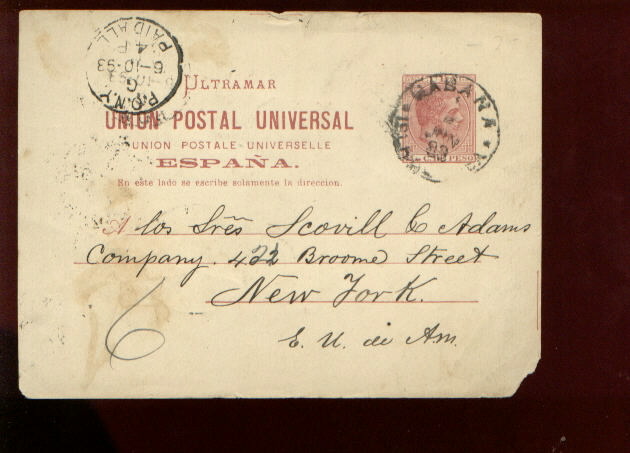 PAID ALL
4 P
6-10-93
G
P.O.N.Y.
ULTRAMAR
HABANA
UNION POSTAL UNIVERSAL
UNION POSTALE UNIVERSELLE
ESPAÑA.
PESO
En este lado se escribe solamente la direccion.
A los Srēs Scovill & Adams
Company. 422 Broome Street
New York.
6
E. U. de Am.